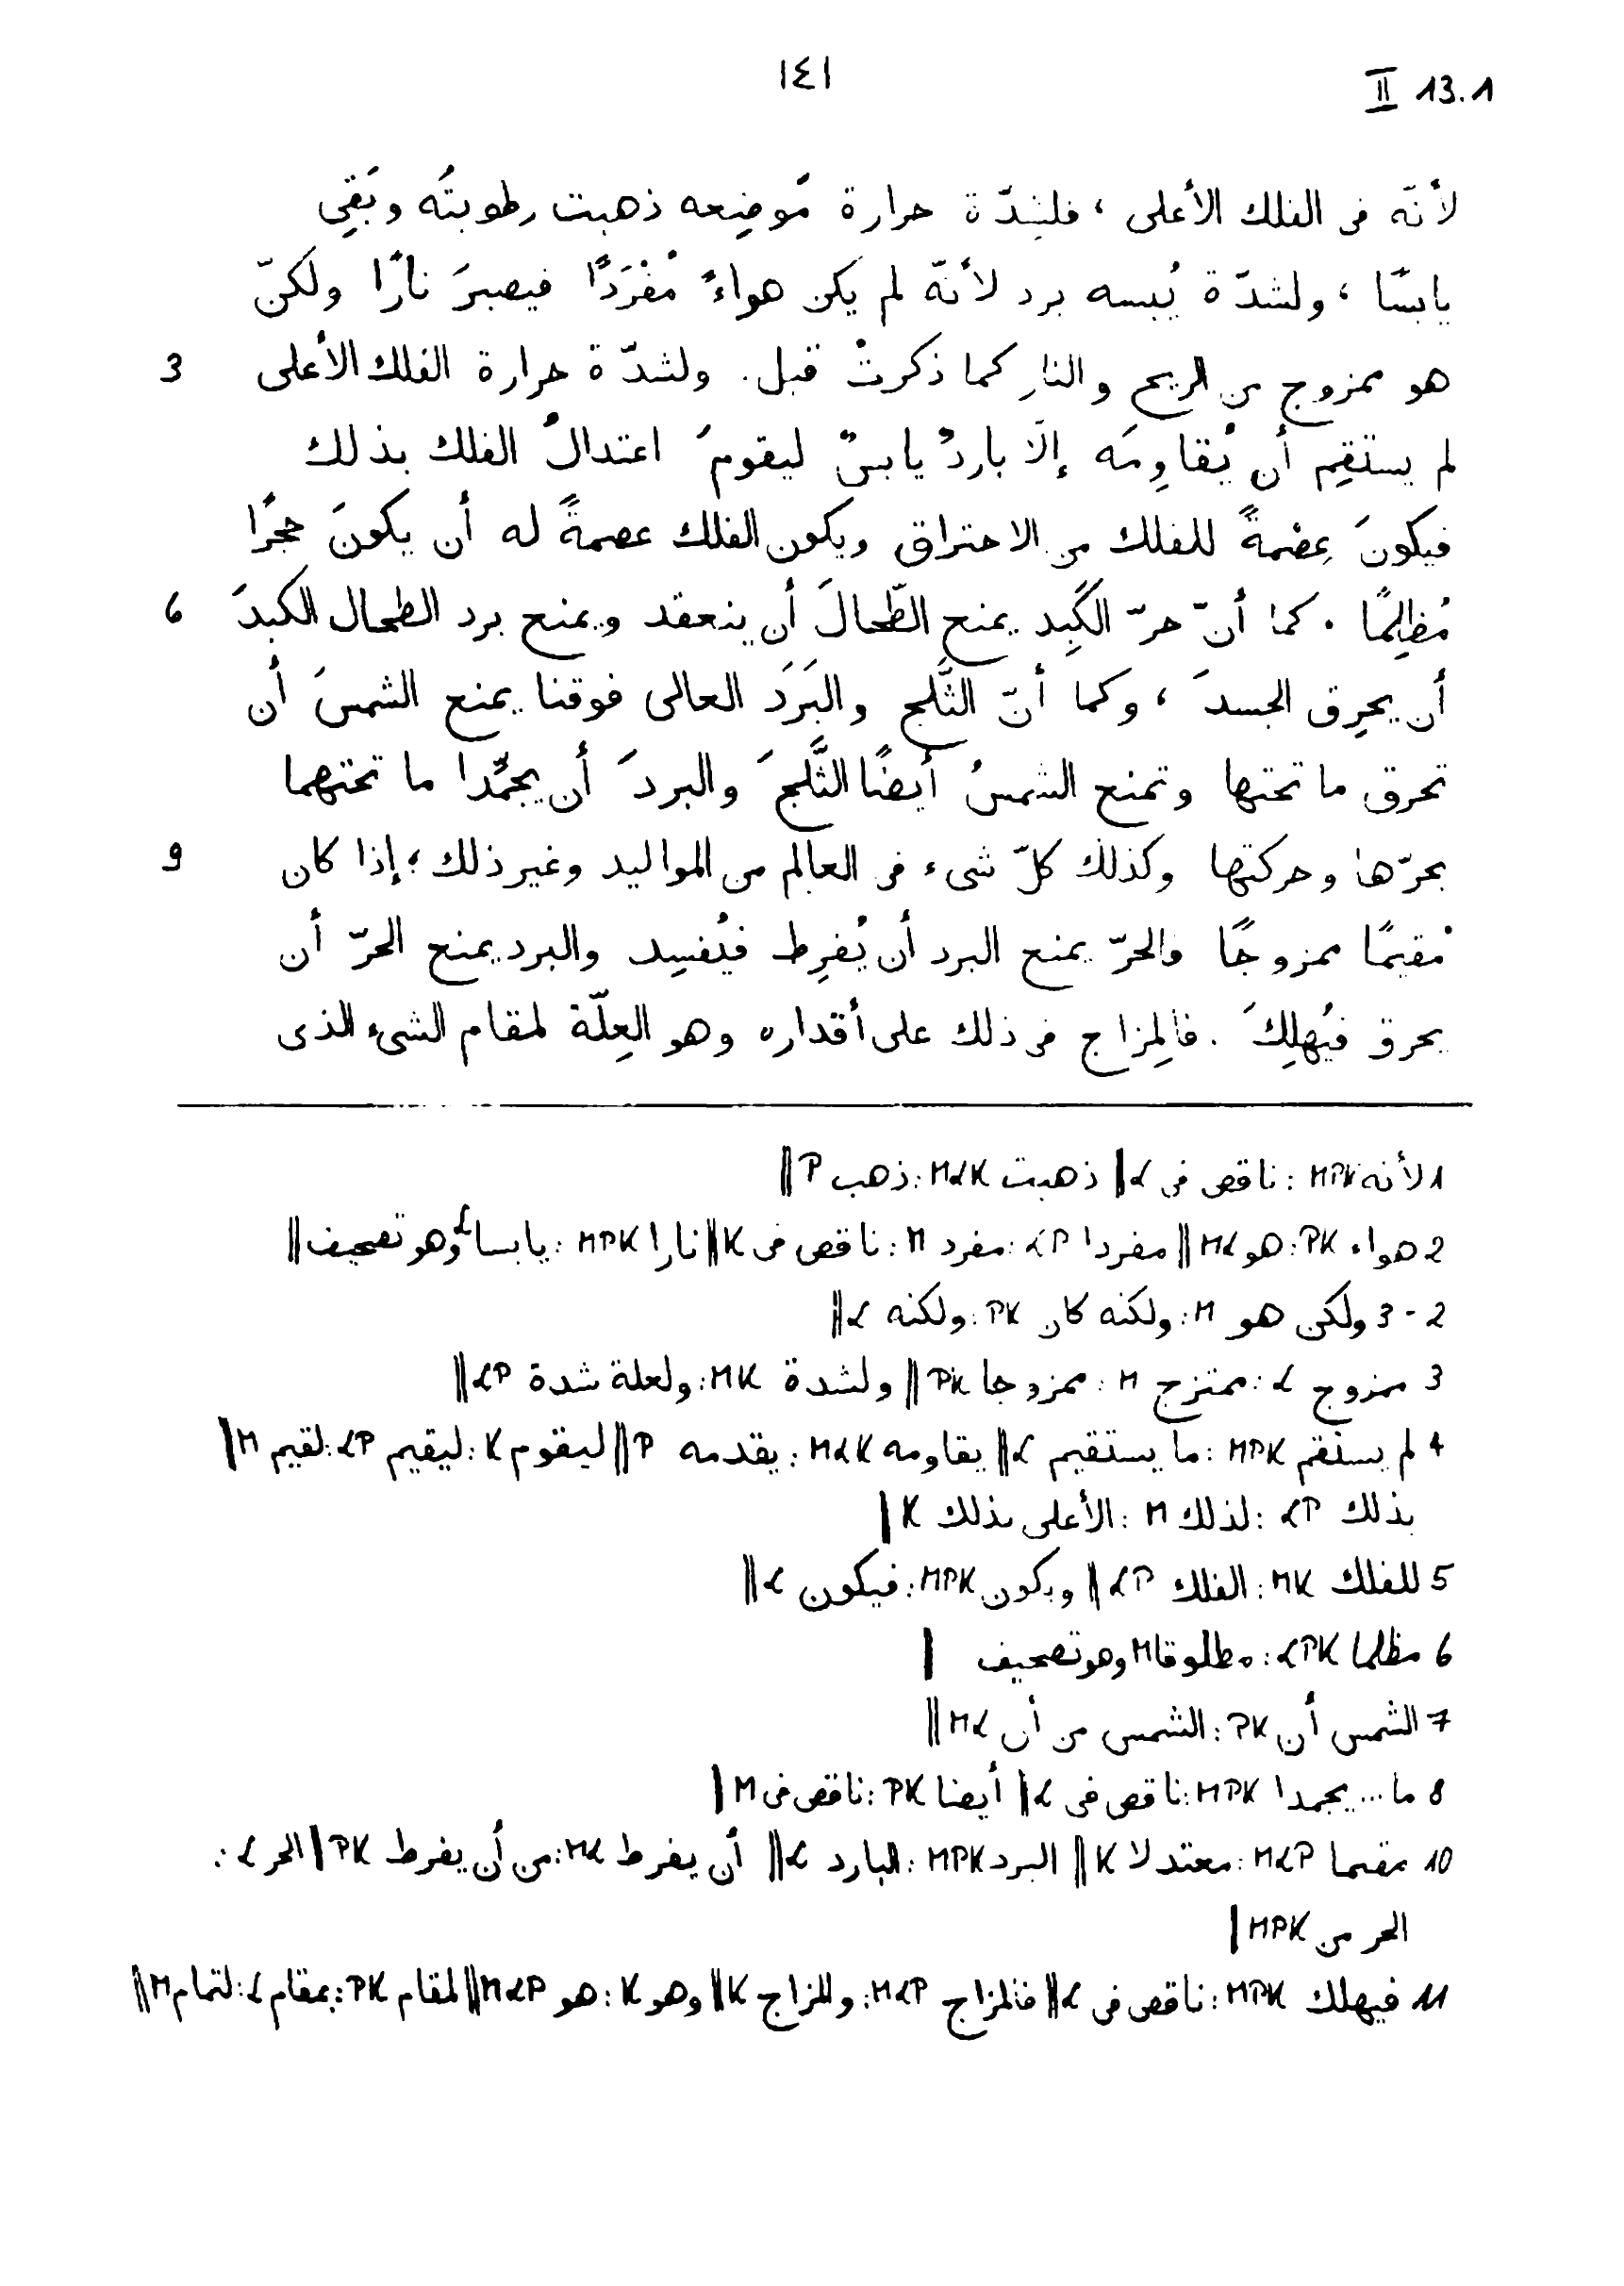 ١٤١
II 13.1
لأنّه فى الفلك الأعلى ، فلشدّة حرارة مَوضِعه ذهبت رطوبتُه وبَقِى
يابسًا ، ولشدّة يُبسه برد لأنّه لم يكن هواءً مُفْرَدًا فيصيرَ نارًا ولكنّ
هو ممزوج من الريح والنار كما ذكرتُ قبل . ولشدّة حرارة الفلك الأعلى 3
لم يستقِم أن يُقاوِمَه إلّا باردٌ يابسٌ ليقومَ اعتدالُ الفلك بذلك
فيكونَ عِصْمةً للفلك من الاحتراق ويكون الفلك عصمةً له أن يكونَ حجرًا
مُظلِمًا . كما أنّ حرّ الكَبِد يمنع الطّحالَ أن ينعقد ويمنع برد الطحال الكبدَ 6
أن يحرِق الجسدَ ، وكما أنّ الثَّلج والبَرَدَ العالى فوقنا يمنع الشمسَ أن
تحرق ما تحتها وتمنع الشمسُ أيضًا الثَّلجَ والبردَ أن يجمِّدا ما تحتهما
بحرّها وحركتها وكذلك كلّ شىء فى العالم من المواليد وغير ذلك ؛ إذا كان 9
مُقيمًا ممزوجًا فالحرّ يمنع البرد أن يُفرِط فيُفسِد والبرد يمنع الحرّ أن
يحرق فيُهلِكَ . فالمِزاج فى ذلك على أقداره وهو العِلّة لمقام الشىء الذى
1 لأنه MPK : ناقص فى L || ذهبت MLK : ذهب P ||
2 هواء PK : هو ML || مفردا LP : مفرد M : ناقص فى K || نارا MPK : يابسا L وهو تصحيف ||
2 - 3 ولكن هو M : ولكنه كان PK : ولكنه L ||
3 ممزوج L : ممتزج M : ممزوجا PK || ولشدة MK : ولعلة شدة LP ||
4 لم يستقم MPK : ما يستقيم L || يقاومه MLK : يقدمه P || ليقوم K : ليقيم LP : لقيم M |
بذلك LP : لذلك M : الأعلى بذلك K |
5 للفلك MK : الفلك LP || ويكون MPK : فيكون L ||
6 مظلما LPK : مطلوقا M وهو تصحيف |
7 الشمس أن PK : الشمس من أن ML ||
8 ما ... يجمدا MPK : ناقص فى L || أيضا PK : ناقص فى M |
10 مقيما MLP : معتدلا K || البرد MPK : البارد L || أن يفرط ML : من أن يفرط PK | الحر L :
الحر من MPK |
11 فيهلك MPK : ناقص فى L || فالمزاج MLP : والمزاج K || وهو K : هو MLP || لمقام PK : بمقام L : لتمام M ||